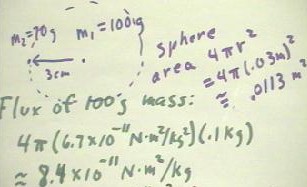 m₂=70g
m₁=100g
3cm
sphere
area 4πr²
=4π(.03m)²
≅ .0113 m²
Flux of 100g mass:
4π(6.7x10⁻¹¹N·m²/kg²)(.1kg)
≅ 8.4x10⁻¹¹N·m²/kg